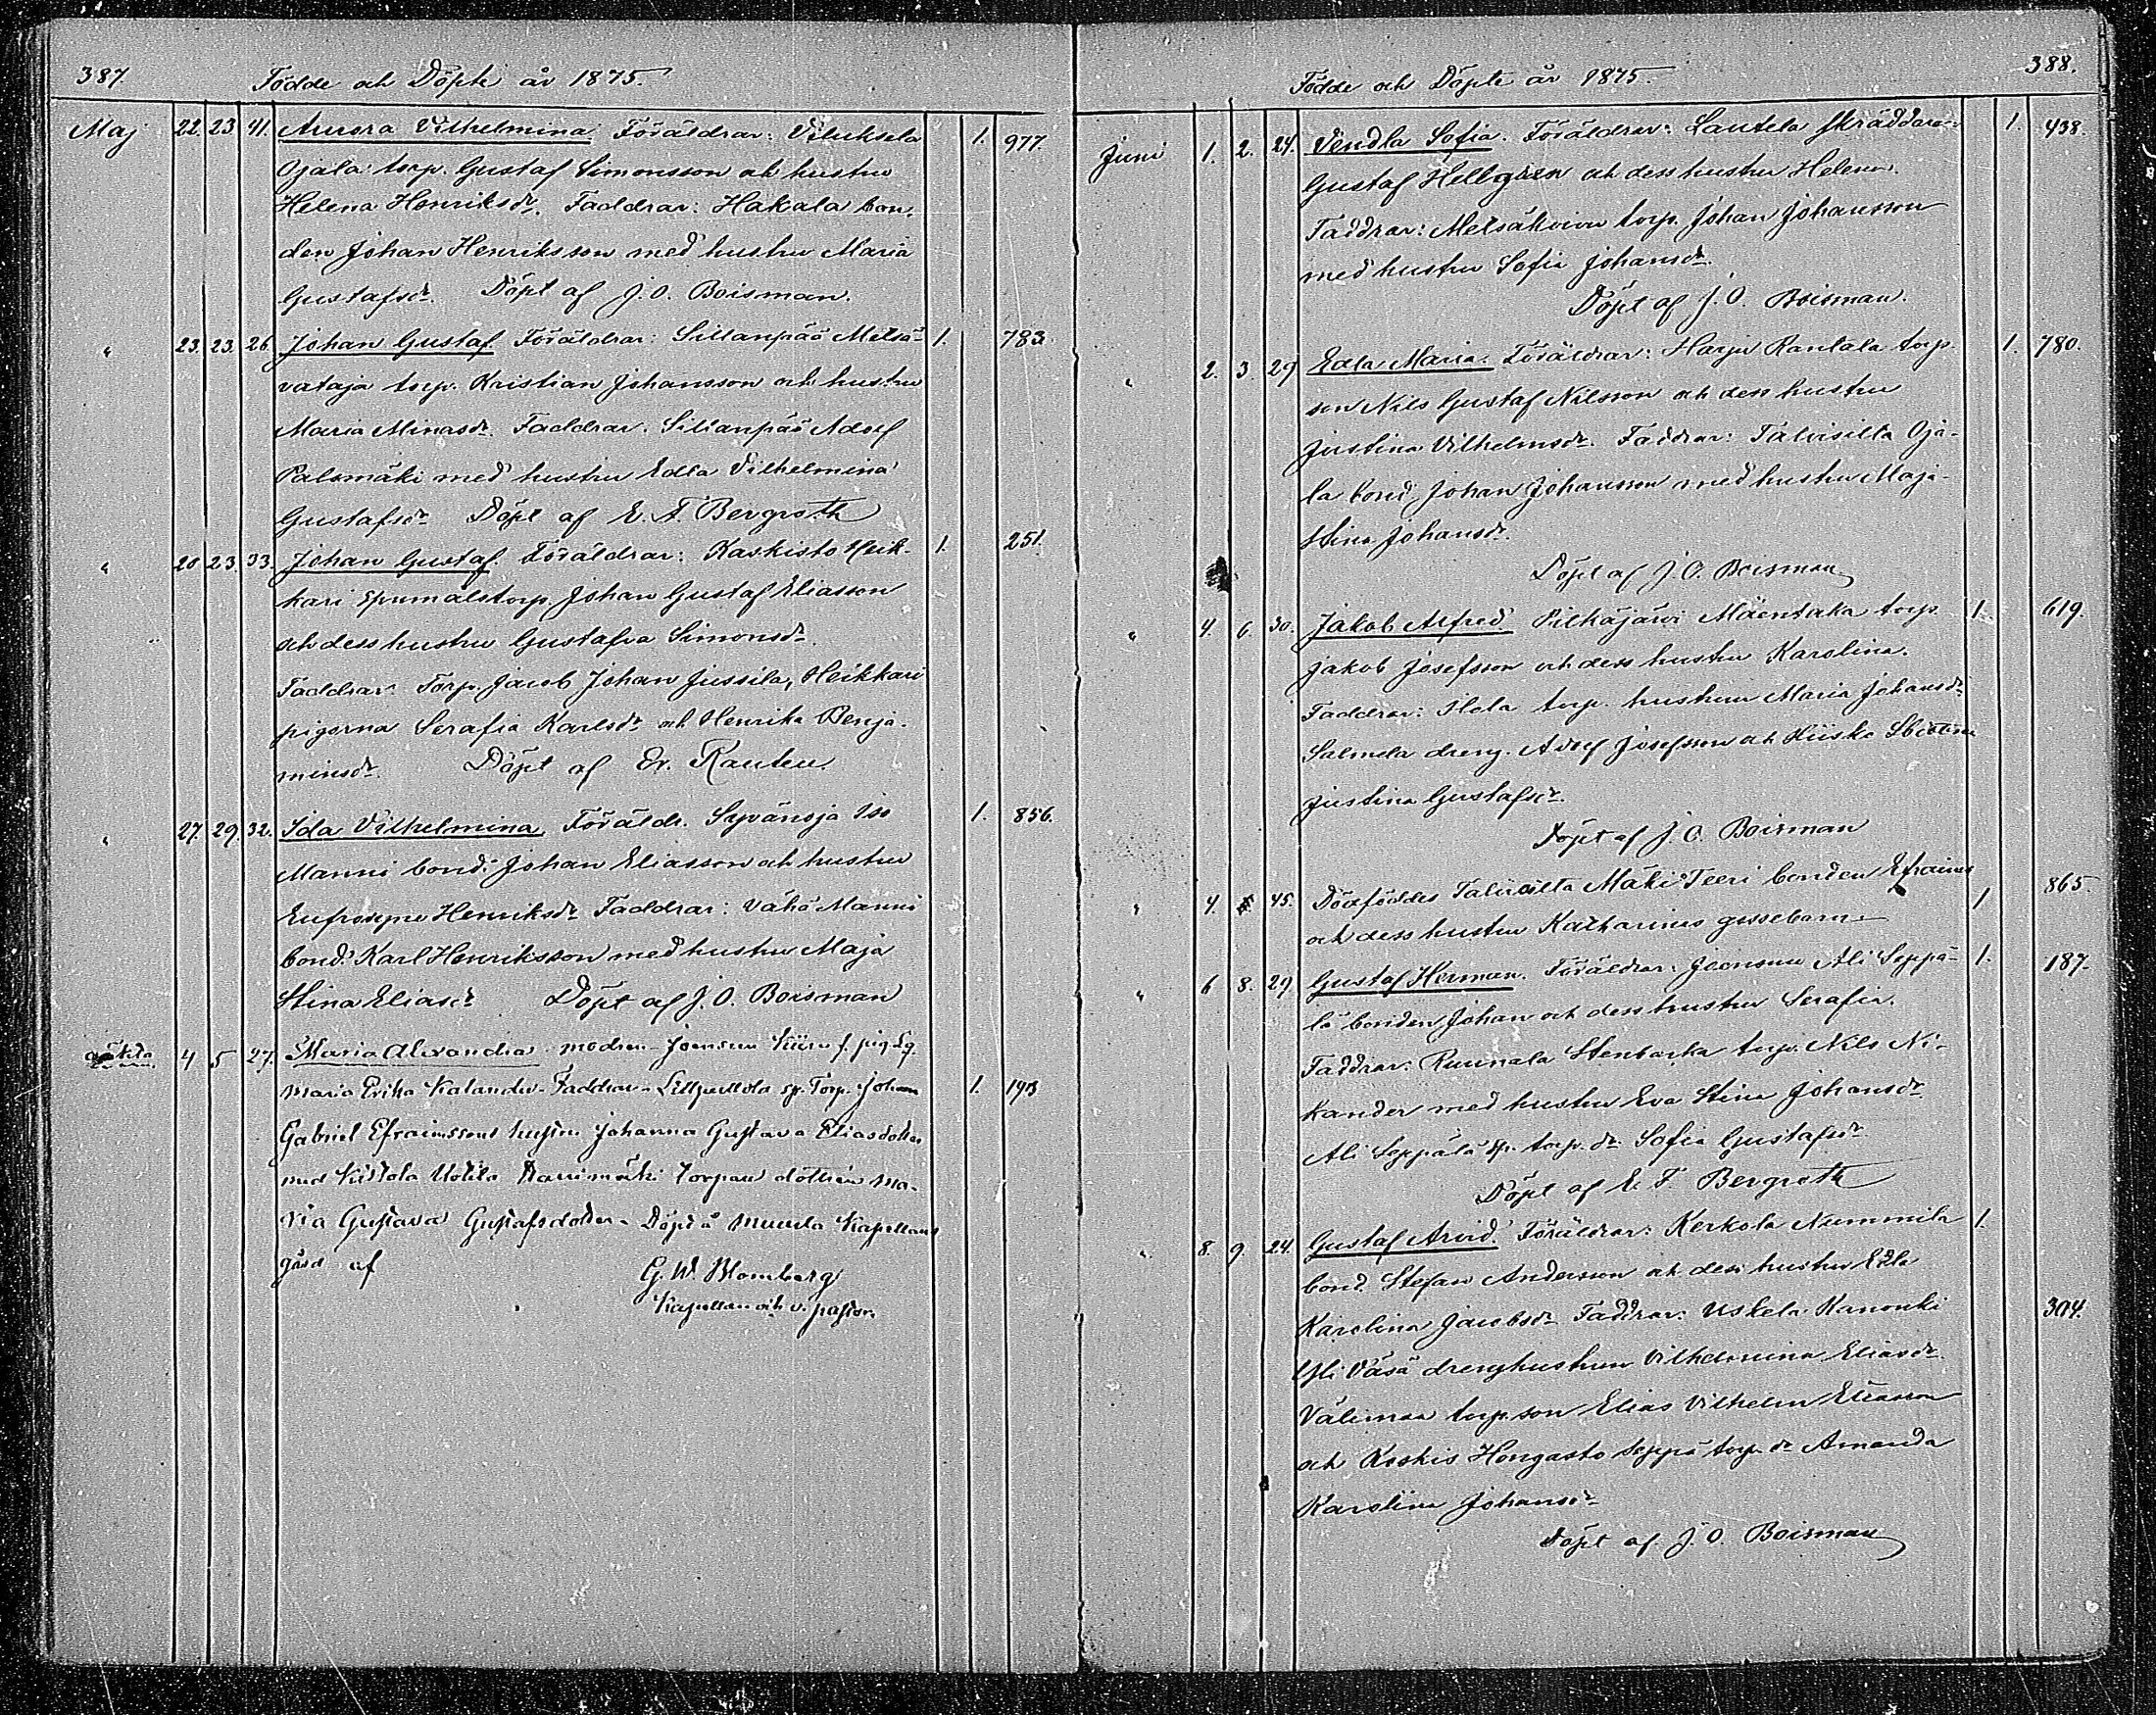 387.
Födde och Döpte år 1875.
Maj 22. 23 41. Aurora Vilhelmina Föräldrar: Viluksela 1. 977.
Ojala torp. Gustaf Simonsson och hustru
Helena Henriksdr. Faddrar: Hakala bon-
den Johan Henriksson med hustru Maria
Gustafsdr. Döpt af J. O. Boisman.
" 23. 23. 26 Johan Gustaf Föräldrar: Sillanpää Metsä- 1. 783.
vataja torp. Kristian Johansson och hustru
Maria Minasdr. Faddrar. Sillanpää Adolf
Palomäki med hustru Edla Vilhelmina
Gustafsdr. Döpt af E. F. Bergroth
" 20 23. 33. Johan Gustaf. Föräldrar: Kaskisto Heik- 1. 251.
kari torp. Johan Gustaf Eliasson
och dess hustru Gustafva Simonsdr.
Faddrar: Torp. Jacob Johan Jussila, Heikkari
pigorna Serafia Karlsdr. och Henrika Benja-
minsdr. Döpt af Er. Rauten.
" 27. 29. 32. Ida Vilhelmina, Föräldr. Syvänoja Iso 1. 856.
Manni bond. Johan Eliasson och hustru
Eufrosyne Henriksdr. Faddrar: Vähä Manni
bond. Karl Henriksson med hustru Maja
Stina Eliasdr. Döpt af J. O. Boisman
4 5 27. Maria Alexandra modren Joensuu f. pig.
Maria Erika Kalander. Faddrar. sp. Torp. Johan 1. 193
Gabriel Efraimssons hustru Johanna Gustava Eliasdotter
med Uotila torpare dottren Ma-
ria Gustava Gustafsdotter. Döpt å Muurla Kapellans
gård af
G. W. Blomberg
Kapellan och v. pastor.
388.
Födde och Döpte år 1875.
Juni 1. 2. 24. Vendla Sofia. Föräldrar: Lautela skräddare 1. 438.
Gustaf Hellgren och dess hustru Helena.
Faddrar: Metsäkoivu torp. Johan Johansson
med hustru Sofia Johansdr.
Döpt af J. O. Boisman.
" 2. 3. 29 Edla Maria. Föräldrar: Harju Rantala torp. 1. 780.
son Nils Gustaf Nilsson och dess hustru
Justina Vilhelmsdr. Faddrar: Talvisilta Oja-
la bond. Johan Johansson med hustru Maja
Stina Johansdr.
Döpt af J. O. Boisman
" 4. 6. 30. Jakob Alfred. Pitkäjärvi Mäentaka torp. 1. 619.
Jakob Josefsson och dess hustru Karolina.
Faddrar: Hola torp. hustrun Maria Johansdr.
Salmela dreng. Adolf Josefsson och Hiisko
Justina Gustafsdr.
Döpt af J. O. Boisman
" 4. 45. Dödföddes Talvisilta Mäki Teeri bonden Efraims 1 865.
och dess hustru Katharinas gossebarn
" 6 8. 29 Gustaf Herman. Föräldrar: Joensuu Ali Seppä- 1. 187.
lä bonden Johan och dess hustru Serafia.
Faddrar: Ruunala Stenbacka torp. Nils Ni-
kander med hustru Eva Stina Johansdr.
Ali Seppälä sp. torp. dr. Sofia Gustafsdr.
Döpt af E. F. Bergroth
" 8. 9. 24. Gustaf Arvid. Föräldrar: Kerkola Nummila 1.
bond. Stefan Andersson och dess hustru Edla
Karolina Jacobsdr. Faddrar: Uskela Kanonki 304.
Yli Väsä drenghustrun Vilhelmina Eliasdr.
Välimaa torp. son Elias Vilhelm Eliasson
och Koskis Hongasto Seppä torp. dr. Amanda
Karolina Johansdr.
Döpt af. J. O. Boisman